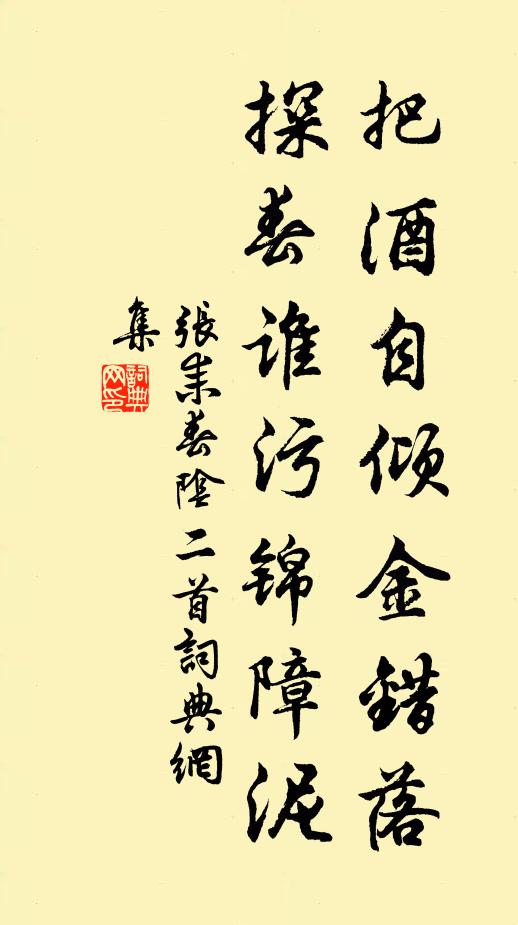 把酒自倾金錯落
探春谁污锦障泥
張耒春陰二首詞典網
集
詞典
网印